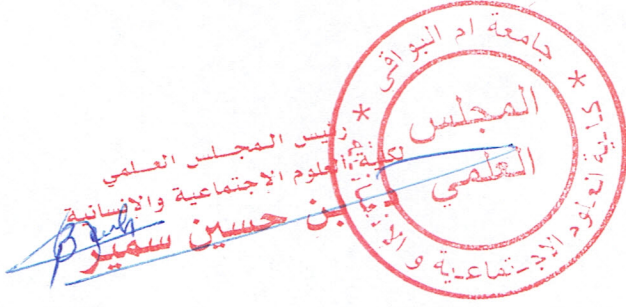 جامعة ام البواقي
* كلية العلوم الاجتماعية و الانسانية *
المجلس
العلمي
رئيس المجلس العلمي
لكلية العلوم الاجتماعية والانسانية
بن حسين سمير